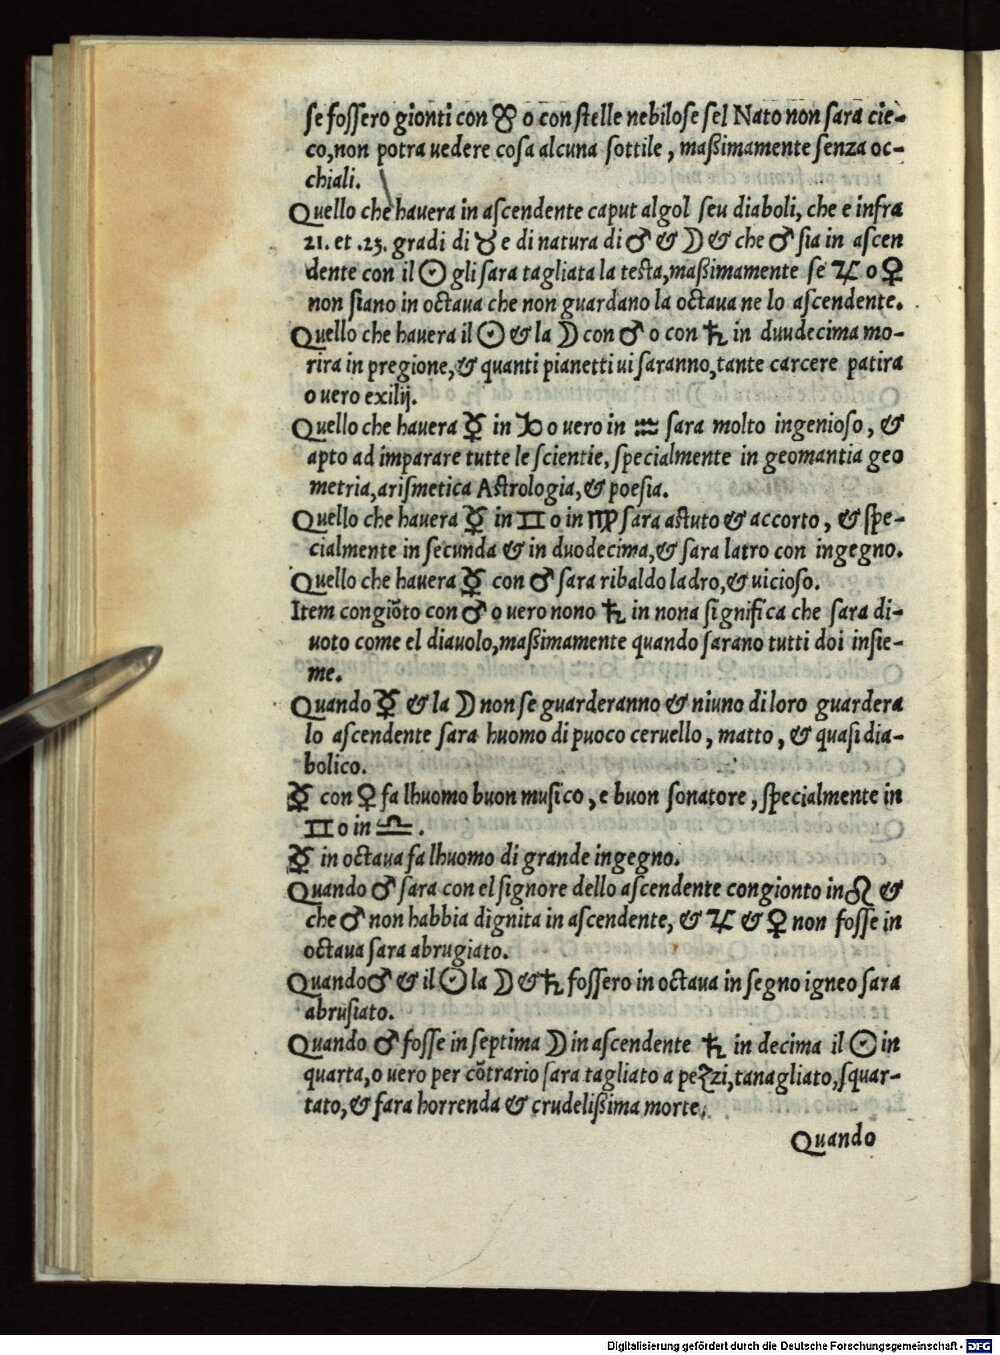 se fossero gionti con ☋ o con stelle nebilose sel Nato non sara cie-
co, non potra uedere cosa alcuna sottile, maßimamente senza oc-
chiali.
Quello che hauera in ascendente caput algol seu diaboli, che e infra
21. et .23. gradi di ♉ e di natura di ♂ & ☽ & che ♂ sia in ascen
dente con il ☉ gli sara tagliata la testa, maßimamente se ♃ o ♀
non siano in octaua che non guardano la octaua ne lo ascendente.
Quello che hauera il ☉ & la ☽ con ♂ o con ♄ in duudecima mo-
rira in pregione, & quanti pianetti ui saranno, tante carcere patira
o uero exilij.
Quello che hauera ☿ in ♑ o uero in ♒ sara molto ingenioso, &
apto ad imparare tutte le scientie, specialmente in geomantia geo
metria, arismetica Astrologia, & poesia.
Quello che hauera ☿ in ♊ o in ♍ sara astuto & accorto, & spe-
cialmente in secunda & in duodecima, & sara latro con ingegno.
Quello che hauera ☿ con ♂ sara ribaldo ladro, & uicioso.
Item congiōto con ♂ o uero nono ♄ in nona significa che sara di-
uoto come el diauolo, maßimamente quando sarano tutti doi insie-
me.
Quando ☿ & la ☽ non se guarderanno & niuno di loro guardera
lo ascendente sara huomo di puoco ceruello, matto, & quasi dia-
bolico.
☿ con ♀ fa lhuomo buon musico, e buon sonatore, specialmente in
♊ o in ♎.
☿ in octaua fa lhuomo di grande ingegno.
Quando ♂ sara con el signore dello ascendente congionto in ♌ &
che ♂ non habbia dignita in ascendente, & ♃ & ♀ non fosse in
octaua sara abrugiato.
Quando ♂ & il ☉ la ☽ & ♄ fossero in octaua in segno igneo sara
abrusiato.
Quando ♂ fosse in septima ☽ in ascendente ♄ in decima il ☉ in
quarta, o uero per cōtrario sara tagliato a pezzi, tanagliato, squar-
tato, & fara horrenda & crudelißima morte.
Quando
Digitalisierung gefördert durch die Deutsche Forschungsgemeinschaft - DFG